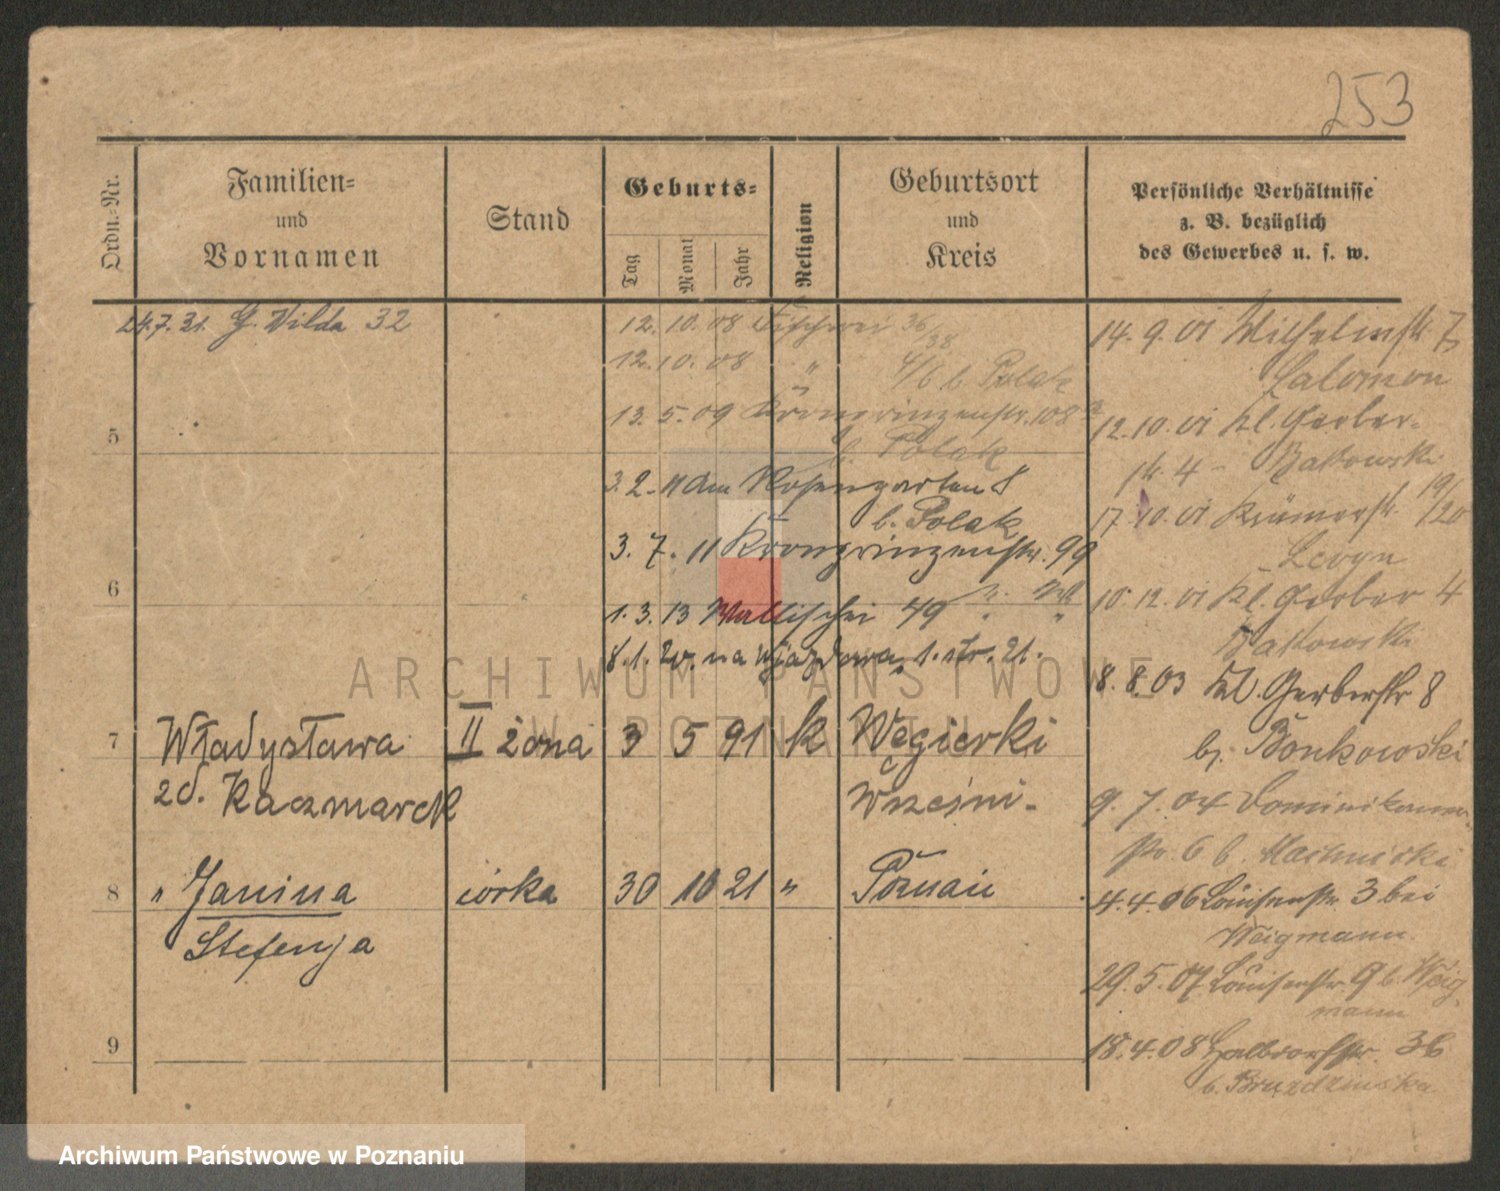 253
Ordn.-Nr.
Familien-
und
Vornamen
Stand
Geburts-
Tag
Monat
Jahr
Religion
Geburtsort
und
Kreis
Persönliche Verhältnisse
z. B. bezüglich
des Gewerbes u. s. w.
24.7.31. G. Wilda 32
12.10.08 Fischerei 36/38
12.10.08 " 4/6 b. Polak
13.5.09 Kronprinzenstr. 108
b. Polak
3.2.11 Am Rosengarten 8
b. Polak
3.7.11 Kronprinzenstr. 99
1.3.13 Wallischei 49
8.1.20. na Wjazdowa, 1. str. 21.
14.9.01 Wilhelmstr. 7
Salomon
12.10.01 Kl. Gerber-
str. 4 - Batkowski
17.10.01 Krämerstr. 19/20
Levyn
10.12.01 Kl. Gerber 4
Batkowski
8.8.03 Kl. Gerberstr 8
b. Bonkowski
9.7.04 Dominikaner
str. 6 b.
4.4.06 Louisenstr. 3 bei
Weigmann.
29.5.07 Louisenstr. 9 b. Weig-
mann
18.4.08 Halbdorfstr. 36
b. Bruzdzinska
5
6
7 Władysława II żona 3 5 91 k Węgierki
zd. Kaczmarek Wrześni-
8 " Janina córka 30 10 21 " Poznań
Stefenja
9
ARCHIWUM PAŃSTWOWE
W POZNANIU
Archiwum Państwowe w Poznaniu